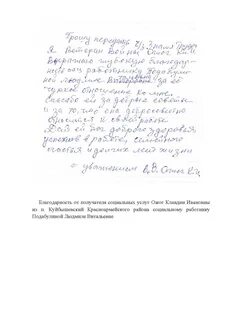 Прошу передать
Я Ветеран Войны Ожог К.И.
выражаю глубокую благодар-
ность соц работнику Подабулы-
ной Людмиле за её
чуткое отношение ко мне,
спасибо ей за добрые советы
и за то что она добросовестно
относится к своей работе
Желаю ей доброго здоровья
успехов в работе, семейного
счастья и долгих лет жизни
с уважением
Благодарность от получателя социальных услуг Ожог Клавдии Ивановны
из п. Куйбышевский Красноармейского района социальному работнику
Подабулиной Людмиле Витальевне